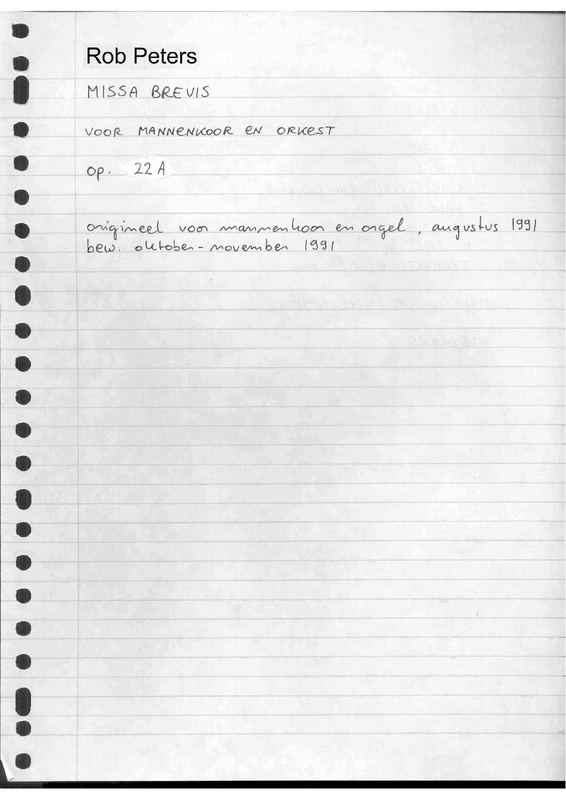 Rob Peters
MISSA BREVIS
VOOR MANNENKOOR EN ORKEST
op. 22 A
origineel voor mannenkoor en orgel, augustus 1991
bew. oktober - november 1991